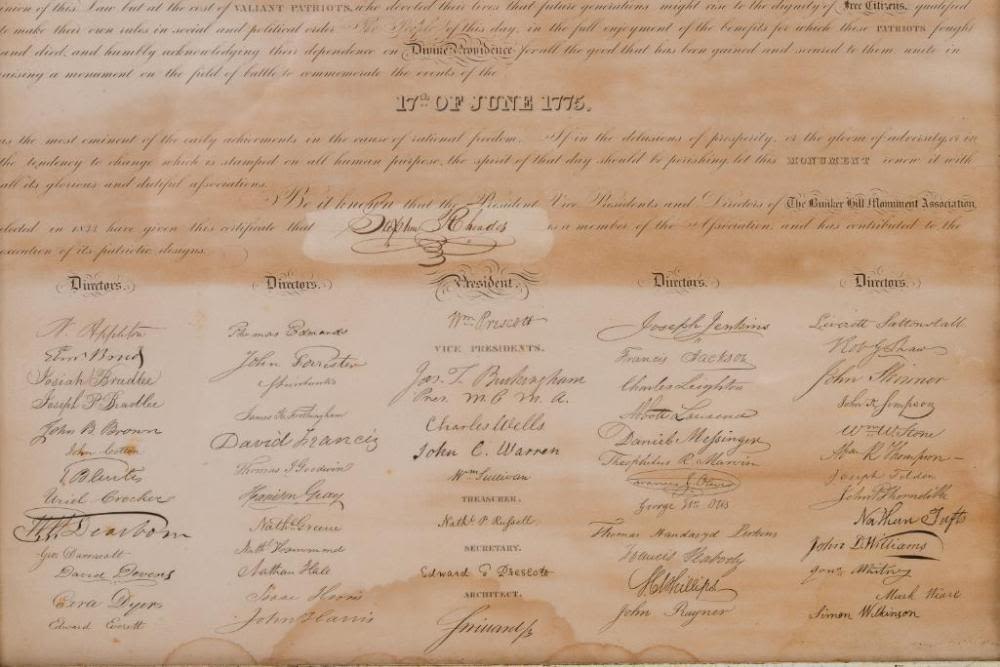 union of this Law but at the cost of VALIANT PATRIOTS, who devoted their lives that future generations might rise to the dignity of Free Citizens, qualified
to make their own rules in social and political order The People of this day, in the full enjoyment of the benefits for which these PATRIOTS fought
and died, and humbly acknowledging their dependence on Divine Providence for all the good that has been gained and secured to them unite in
raising a monument on the field of battle to commemorate the events of the
17th OF JUNE 1775.
as the most eminent of the early achivements in the cause of rational freedom. If in the delusions of prosperity, or the gloom of adversity, or in
the tendency to change which is stamped on all human purpose, the spirit of that day should be perishing, let this MONUMENT renew it with
all its glorious and dutiful associations.
Be it known that the President Vice Presidents and Directors of The Bunker Hill Monument Association,
elected in 1833 have given this certificate that Stephen Rhoades is a member of the Association, and has contributed to the
execution of its patriotic designs.
Directors. Directors. President. Directors. Directors.
N. Appleton
Josiah Bradlee
Joseph P. Bradlee
John B. Brown
John Cotton
Uriel Crocker
David Devens
Ezra Dyer
Edward Everett
Thomas Edmands
John Forrester
James K. Frothingham
David Francis
Thomas J. Goodwin
Harrison Gray
Nathl. Greene
Nathl. Hammond
Nathan Hale
Isaac Harris
John Harris
Wm. Prescott
VICE PRESIDENTS.
Jos. T. Buckingham
Pres. M. C. M. A.
Charles Wells
John C. Warren
Wm. Sullivan
TREASURER.
Nathl. P. Russell
SECRETARY.
Edward G Prescott
ARCHITECT.
Joseph Jenkins
Francis Jackson
Charles Leighton
Abbott Lawrence
Daniel Messinger
Theophilus R. Marvin
Francis J. Oliver
George Wm. Otis
Thomas Handasyd Perkins
Francis Peabody
John Rayner
Leverett Saltonstall
Robt. G. Shaw
John Skinner
John K. Simpson
Wm. W. Stone
Joseph Tilden
John P. Thorndike
Nathan Tufts
John D. Williams
Mark Ware
Simon Wilkinson